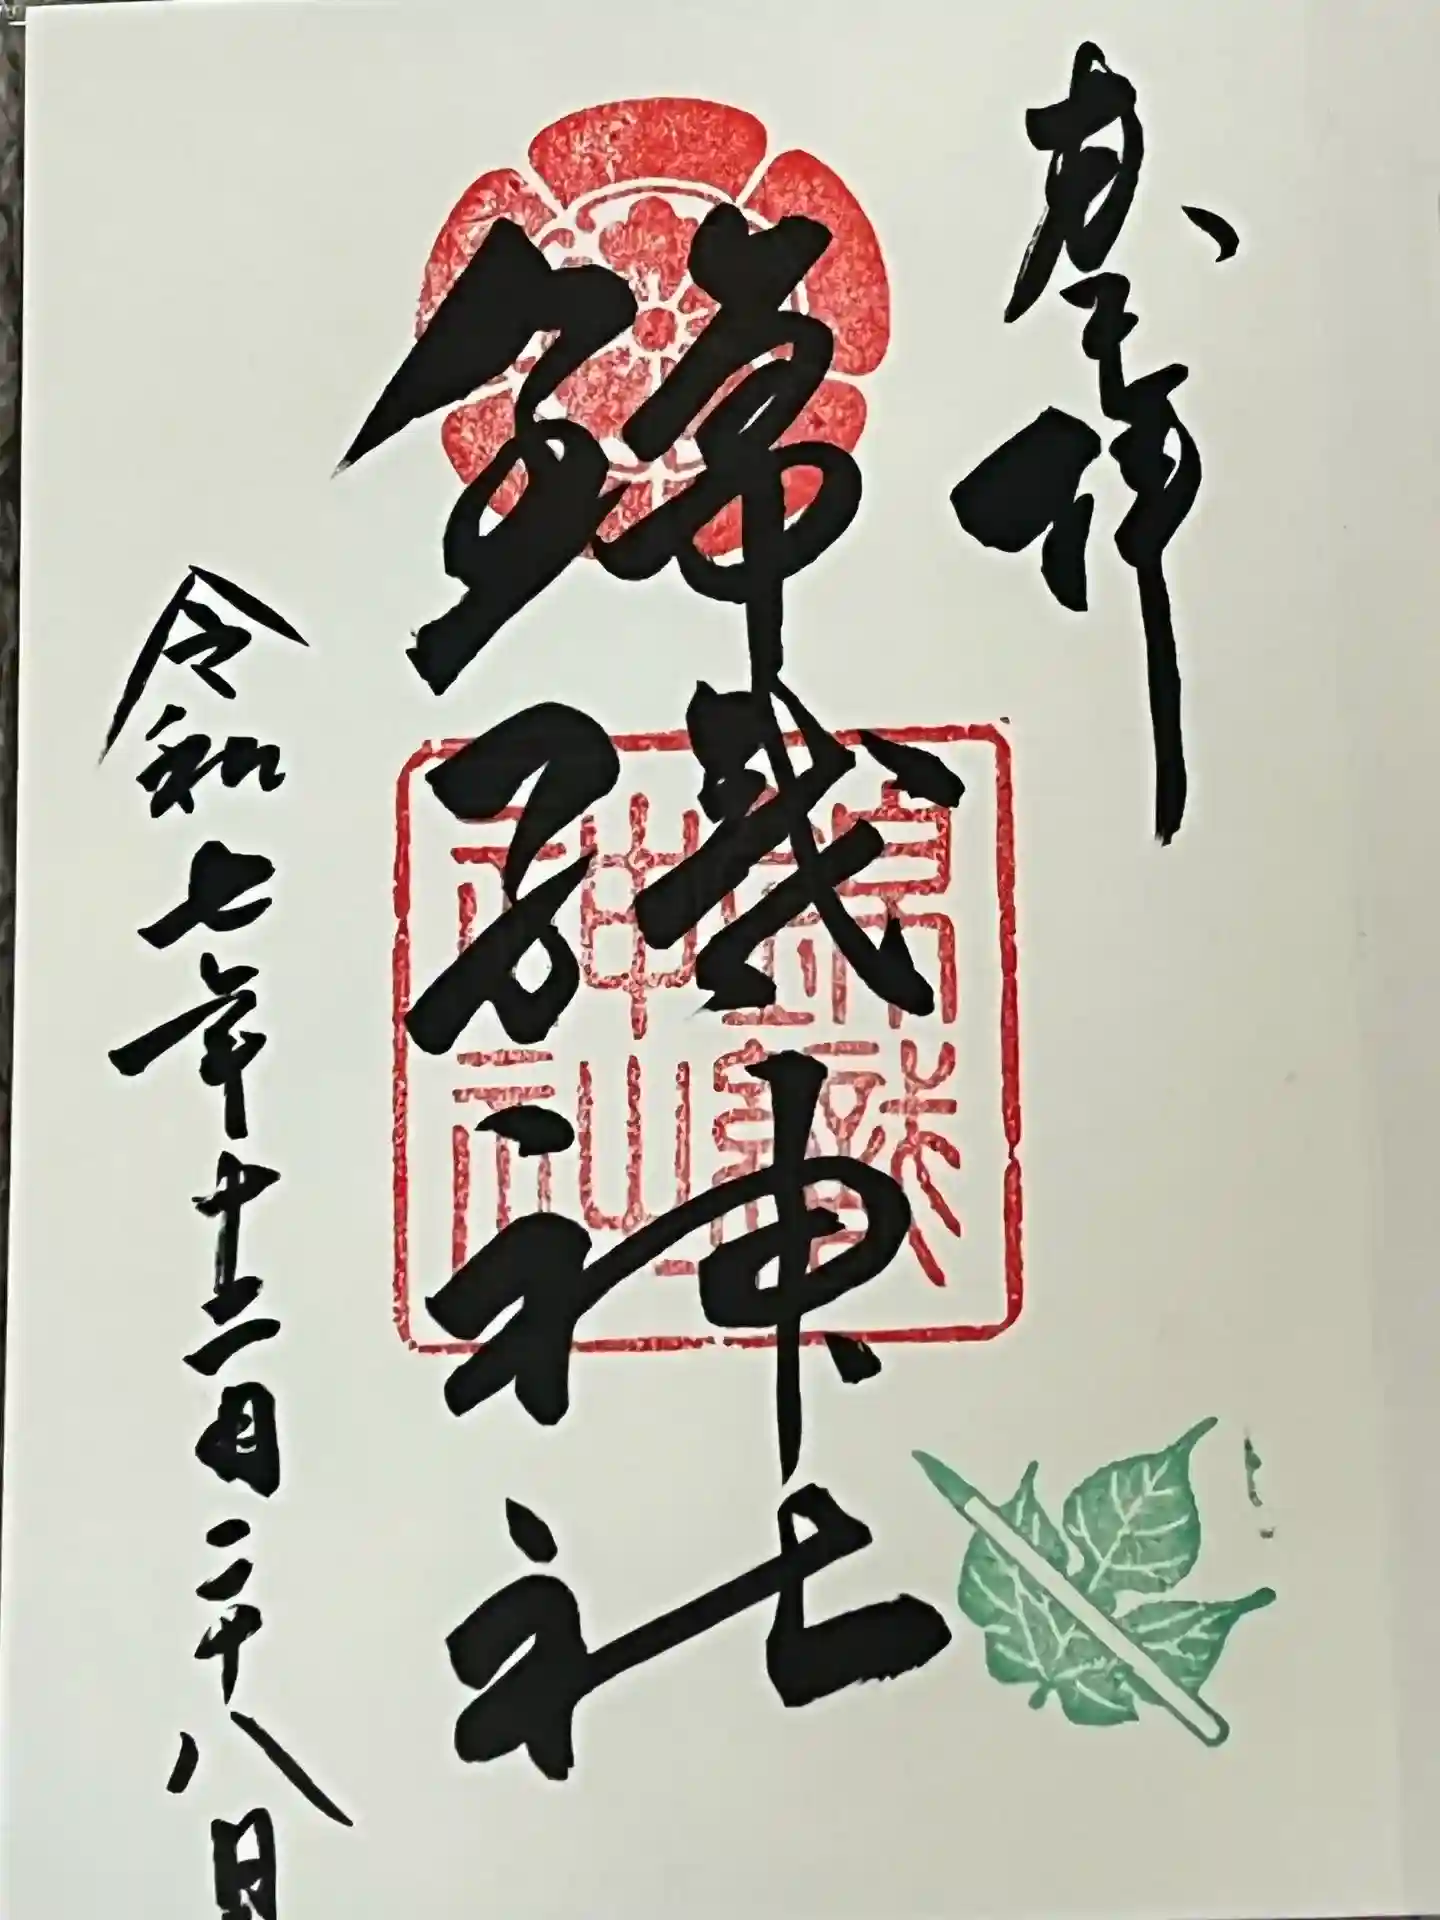 奉拝
錦織神社
令和七年十二月二十八日
錦織
神社